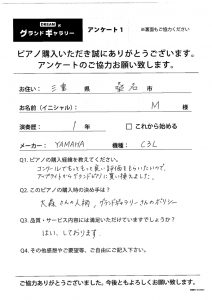 DREAM
グランドギャラリー
アンケート1
※裏面もご協力ください
ピアノ購入いただき誠にありがとうございます。
アンケートのご協力お願い致します。
お住い: 三重 県 桑名 市
お名前(イニシャル): M 様
演奏歴: 1 年 □これから始める
メーカー: YAMAHA 機種: C3L
Q1. ピアノの購入経緯を教えてください。
コンクールでもっともっと良い評価をもらいたいので、
アップライトからグランドピアノに買い換えました。
Q2. このピアノ購入時の決め手は?
大森さんの人柄、グランドギャラリーさんのポリシー
Q3. 品質・サービス内容には満足いただけていますでしょうか?
はい、しております。
Q4. その他感想やご要望等、ご自由にご記入下さい。
ご協力ありがとうございました。今後ともよろしくお願い致します。